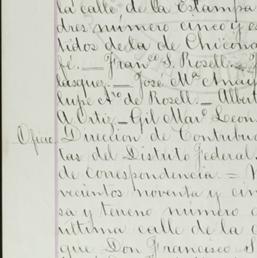 la calle de la Estampa
dres número cinco y es
tidos de la de Chicona
fé. — Fran.co S. Rosell.
lasquez. — José M.a Anay
lupe A. de Rosell. — Albert
A. Ortiz — Gil Mar.o Leon
Dirección de Contribu
tas del Distrito Federal.
de Correspondencia =
vecientos noventa y cin
sa y terreno número
última calle de la
que Don Francisco S